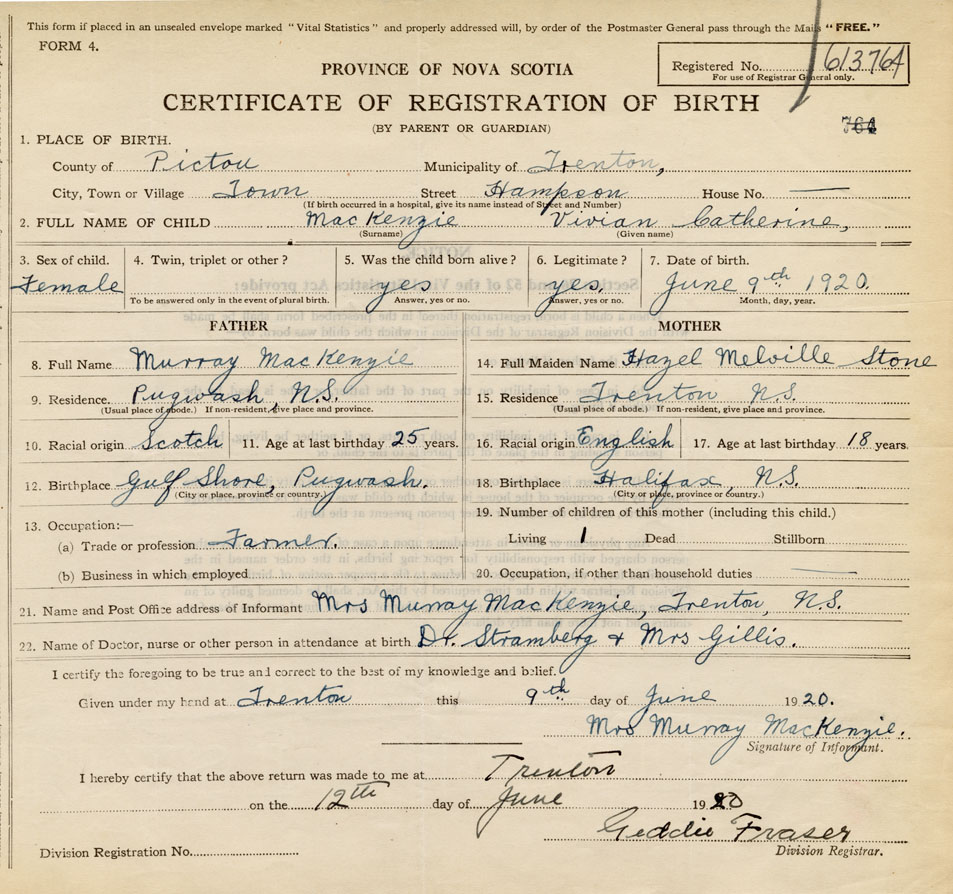 This form if placed in an unsealed envelope marked "Vital Statistics" and properly addressed will, by order of the Postmaster General pass through the Mails "FREE."
FORM 4.
Registered No. 613764
For use of Registrar General only.
PROVINCE OF NOVA SCOTIA
CERTIFICATE OF REGISTRATION OF BIRTH
(BY PARENT OR GUARDIAN)
764
1. PLACE OF BIRTH.
County of Pictou Municipality of Trenton,
City, Town or Village Town Street Hampson House No. —
(If birth occurred in a hospital, give its name instead of Street and Number)
2. FULL NAME OF CHILD MacKenzie Vivian Catherine,
(Surname) (Given name)
3. Sex of child. 4. Twin, triplet or other? 5. Was the child born alive? 6. Legitimate? 7. Date of birth.
Female yes yes. June 9th 1920.
To be answered only in the event of plural birth. Answer, yes or no. Answer, yes or no. Month, day, year.
FATHER MOTHER
8. Full Name Murray MacKenzie 14. Full Maiden Name Hazel Melville Stone
9. Residence. Pugwash, N.S. 15. Residence Trenton N.S.
(Usual place of abode.) If non-resident, give place and province. (Usual place of abode.) If non-resident, give place and province.
10. Racial origin Scotch 11. Age at last birthday 25 years. 16. Racial origin English 17. Age at last birthday 18 years.
12. Birthplace Gulf Shore, Pugwash. 18. Birthplace Halifax, N.S.
(City or place, province or country.) (City or place, province or country.)
19. Number of children of this mother (including this child.)
13. Occupation:—
(a) Trade or profession Farmer. Living 1 Dead Stillborn
(b) Business in which employed 20. Occupation, if other than household duties —
21. Name and Post Office address of Informant Mrs Murray MacKenzie, Trenton, N.S.
22. Name of Doctor, nurse or other person in attendance at birth Dr. Stramberg & Mrs Gillis.
I certify the foregoing to be true and correct to the best of my knowledge and belief.
Given under my hand at Trenton this 9th day of June 1920.
Mrs Murray MacKenzie.
Signature of Informant.
I hereby certify that the above return was made to me at Trenton
on the 12th day of June 1920
Geddie Fraser
Division Registrar.
Division Registration No.